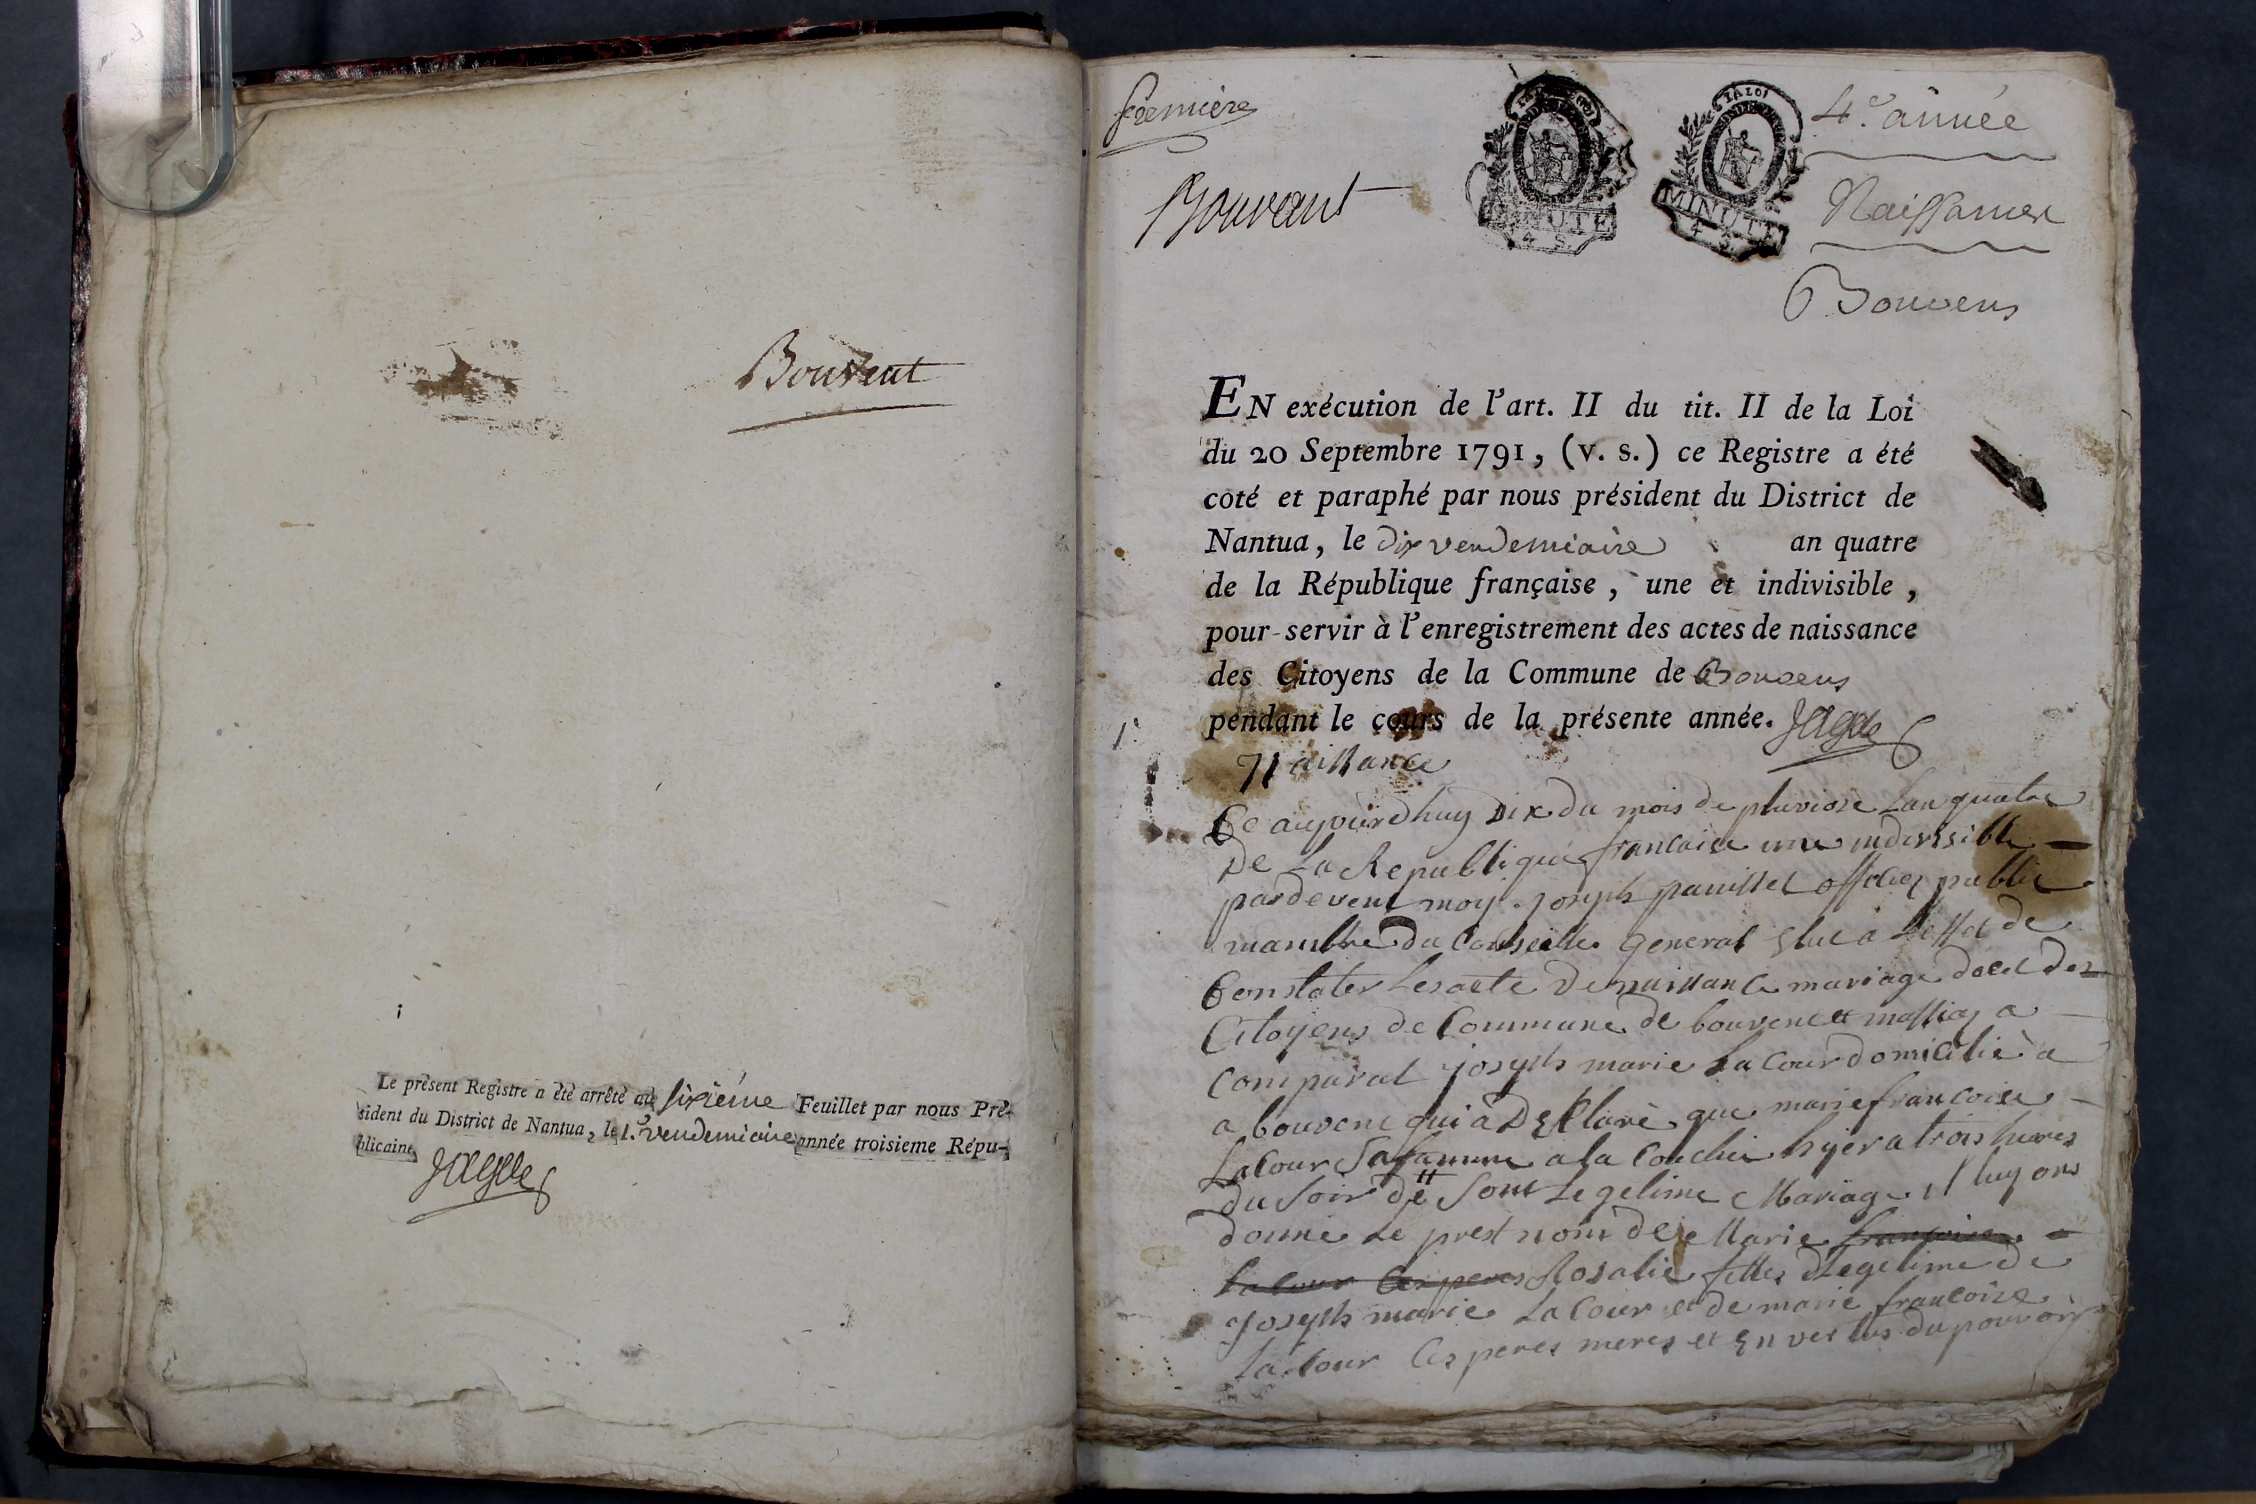 Bouvent
Le présent Registre a été arrêté au sixiéme Feuillet par nous Pré-
sident du District de Nantua, le 1.er vendemiaire année troisieme Répu-
blicaine
Premiere
Bouvant
LA LOI
MINUTE
4 S.
LA LOI
MINUTE
4 S.
4.e année
Naissances
Bouvens
EN exécution de l'art. II du tit. II de la Loi
du 20 Septembre 1791, (v. s.) ce Registre a été
coté et paraphé par nous président du District de
Nantua, le dix vendemiaire an quatre
de la République française, une et indivisible,
pour servir à l'enregistrement des actes de naissance
des Citoyens de la Commune de Bouvens
pendant le cours de la présente année.
1.
Naissance
Ce aujourdhuy Dix du mois de pluviose Lan quatre
De La Republique francaise une indivisible
pardevent moy joseph officier public
mambre du Conseille general elue a Leffet de
Constater Lesacte De naissance mariage deed des
Citoyens de Commune de bouvent et a
comparat joseph marie La Cour domicilie a
a bouvent qui a Declare que marie francoise
La Cour Sa famme a la Couchée hyer a trois hures
du Soir de Sont Legetime Mariage Il luy ons
donne Le prest nom de Marie francoise
La Cour Ces peres Rosalie filles Legetime de
joseph marie La Cour et de marie francoise
La Cour Ces peres meres et En vertus du pouvoir